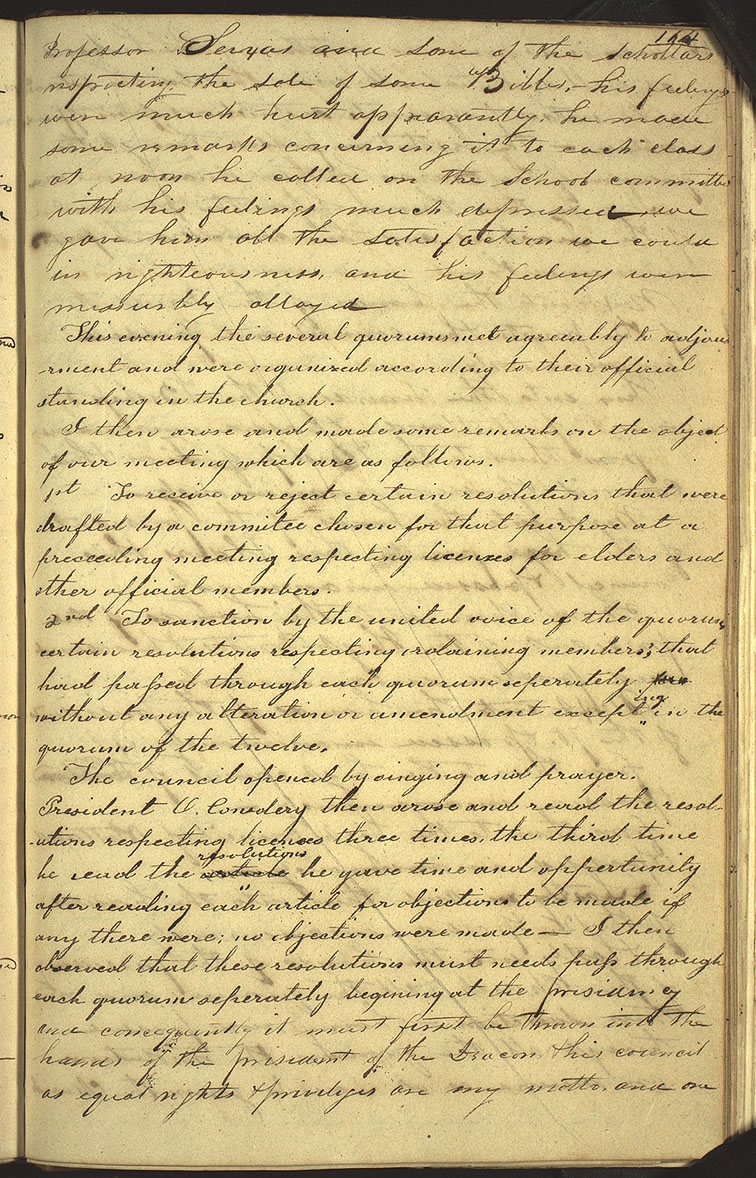 164
Professor Seixas and some of the schollars
respecting the sale of some Bibles,- his feelings
were much hurt apparantly, he made
some remarks concerning it to each class
at noon he called on the School committee
with his feelings much depressed - we
gave him all the satisfaction we could
in righteousness, and his feelings were
measurbly allayed
This evening the several quorums met agreeably to adjour
-nment and were organized according to their official
standing in the church.
I then arose and made some remarks on the object
of our meeting which are as follows.
1st To receive or reject certain resolutions that were
drafted by a commitee chosen for that purpose at a
preceeding meeting respecting licenses for elders and
other official members.
2nd To sanction by the united voice of the quorums
certain resolutions respecting ordaining members; that
had passed through each quorum seperately
without any alteration or amendment excepting in the
quorum of the twelve.
The council opened by singing and prayer.
President O. Cowdery then arose and read the resol-
-utions respecting licenses three times, the third time
he read the article resolutions he gave time and oppertunity
after reading each article for objections to be made if
any there were; no objections were made — I then
observed that these resolutions must needs pass through
each quorum seperately begining at the presidency
and concequently it must first be thrown into the
hands of the president of the Deacon this council
as equal rights & priviliges are my motto, and one